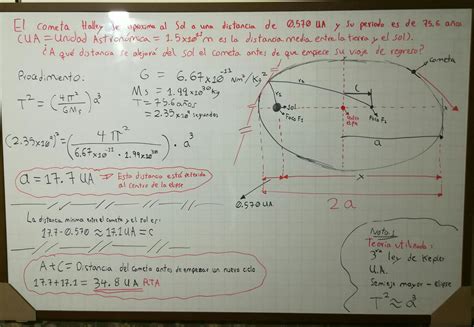 El cometa Halley se aproxima al Sol a una distancia de 0.570 UA y su periodo es de 75.6 años
(UA = Unidad Astronómica = 1.5x10¹¹m es la distancia media entre la tierra y el sol).
¿A qué distancia se alejará del sol el cometa antes de que empiece su viaje de regreso?
Procedimiento:
G = 6.67x10⁻¹¹ Nm²/Kg²
Ms = 1.99x10³⁰Kg
T = 75.6 años
= 2.35x10⁹ segundos
T² = (4π²/GMs) a³
(2.35x10⁹)² = (4π²/6.67x10⁻¹¹ · 1.99x10³⁰) · a³
a = 17.7 UA
Esta distancia está referida
al centro de la elipse
La distancia mínima entre el cometa y el sol es:
17.7 - 0.570 ≈ 17.1 UA = C
A + C = Distancia del cometa antes de empezar un nuevo ciclo
17.7 + 17.1 = 34.8 UA RTA
Cometa
Sol
Foco F₁
Foco F₂
C
a
0.570 UA
x
2a
Nota:
Teoría utilizada:
3ra ley de Kepler
U.A.
Semieje mayor - elipse
T² ≈ a³